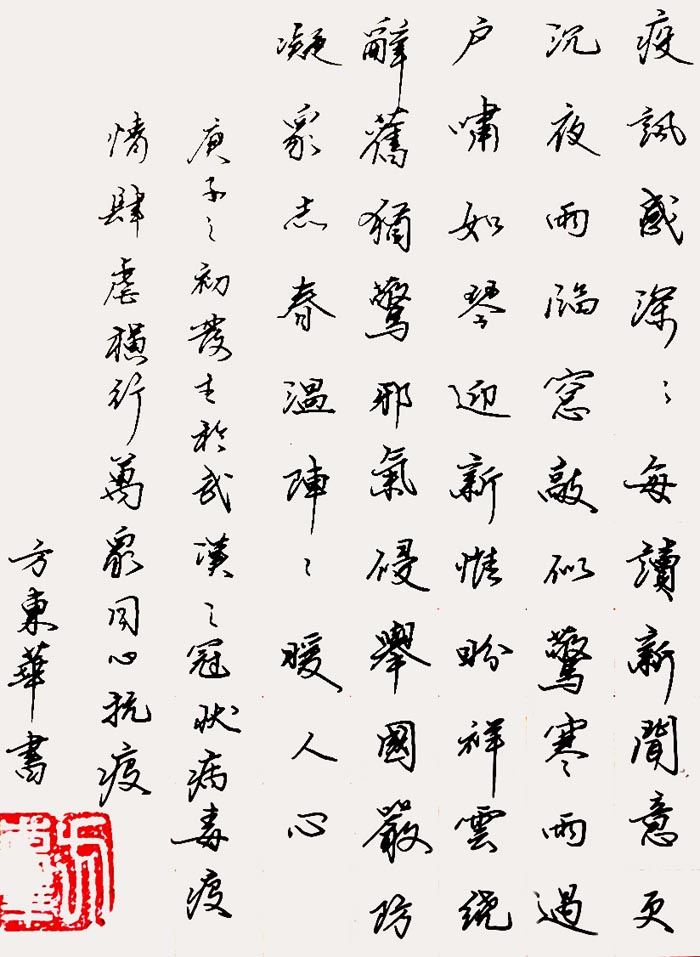 疫訊感深〻每讀新聞意更
沉夜雨臨窓敲似驚寒雨過
户嘯如琴迎新惟盼祥雲绕
辭舊猶驚邪氣侵舉國嚴防
凝眾志春温陣〻暖人心
庚子之初發生於武漢之冠狀病毒疫
情肆虐橫行萬眾同心抗疫
方東華書